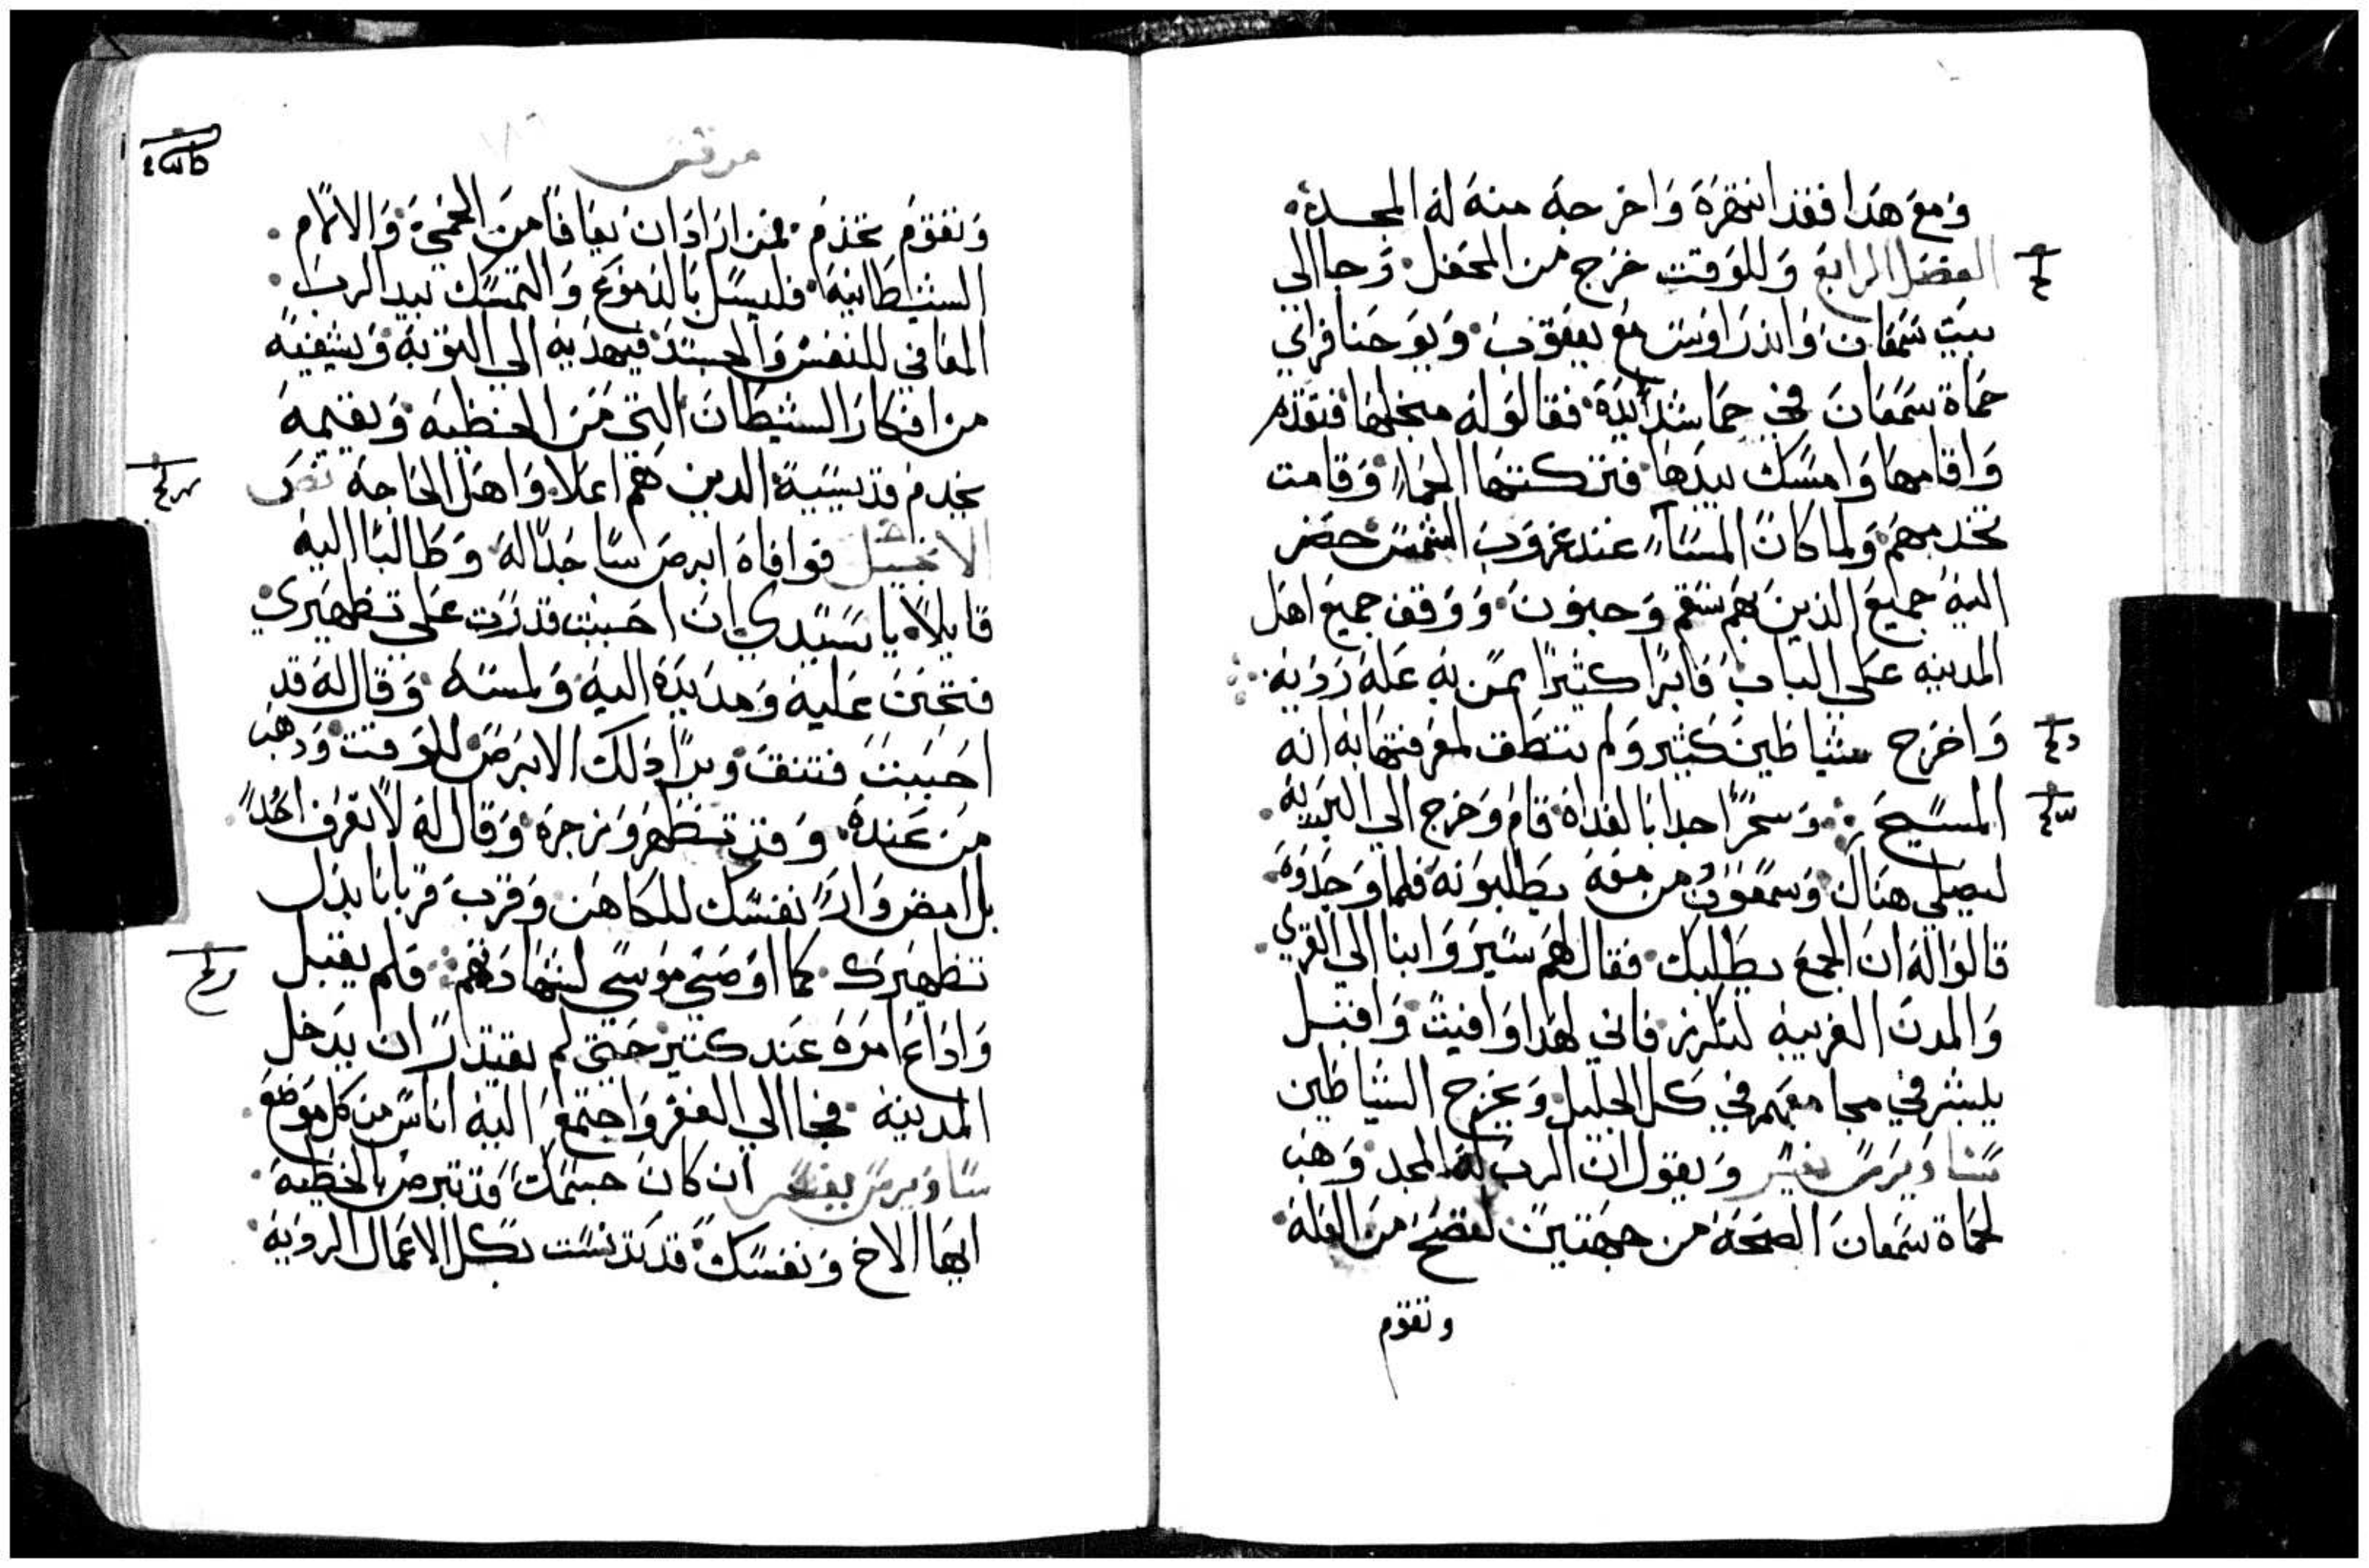 ومع هذا فقد انتهره واخرجه منه له المجد
الفصل الرابع وللوقت خرج من المحفل وجا الي
بيت سمعان واندراوس مع يعقوب ويوحنا فراي
حماة سمعان في حما شديده فقالو له منجلها فتقدم
واقامها وامسك بيدها فتركتها الحما وقامت
تخدمهم ولما كان المسآ عند غروب الشمس حضر
اليه جميع الذين بهم سقم وجنون ووقف جميع اهل
المدينه علي الباب فابرا كثيرا ممن به عله رديه
واخرج شياطين كثير ولم تنطق لمعرفتها به انه
المسيح وسحرًا جدا بالغداه قام وخرج الي البريه
ليصلي هناك وسمعون ومن معه يطلبونه فلما وجدوه
قالو اله ان الجمع يطلبك فقال لهم سيروا بنا الي القري
والمدن القريبه لنكرز فاني لهذا وافيت واقبل
يبشر في مجامعهم في كل الجليل ويخرج الشياطين
ويقول ان الرب له المجد وهب
لحماة سمعان الصحه من جهتين لتصح من العله
وتقوم
مرقس
وتقوم تخدم فمن اراد ان يعافا من الحمي والالام
الشيطانيه فليسل بالدموع والتمسك بيد الرب
المعافي للنفس والجسد فيهديه الي التوبه ويشفيه
من افكار الشيطان التي هي الخطيه ويقيمه
يخدم قديسيه الدين هم اعلا واهل الحاجه نص
الانجيل فوافاه ابرص ساجدًا له وطالبًا اليه
قايلاً يا سيدي ان احببت قدرت علي تطهيري
فتحنن عليه ومد يده اليه ولمسه وقال له قد
احببت فتنق وبرا دلك الابرص للوقت ودهب
من عنده وقد تطهر وزجره وقال له لا تعرف احدًا
بل امض وار نفسك للكاهن وقرب قربانا بدل
تطهيرك كما اوصي موسي لشهادتهم فلم يقبل
واداع امره عند كثير حتي لم يقتدر ان يدخل
المدينه فجا الي القفر واجتمع اليه اناس من كل موضع
ان كان جسمك قد تبرص بالخطيه
ايها الاخ ونفسك قد تدنست بكل الاعمال الرديه